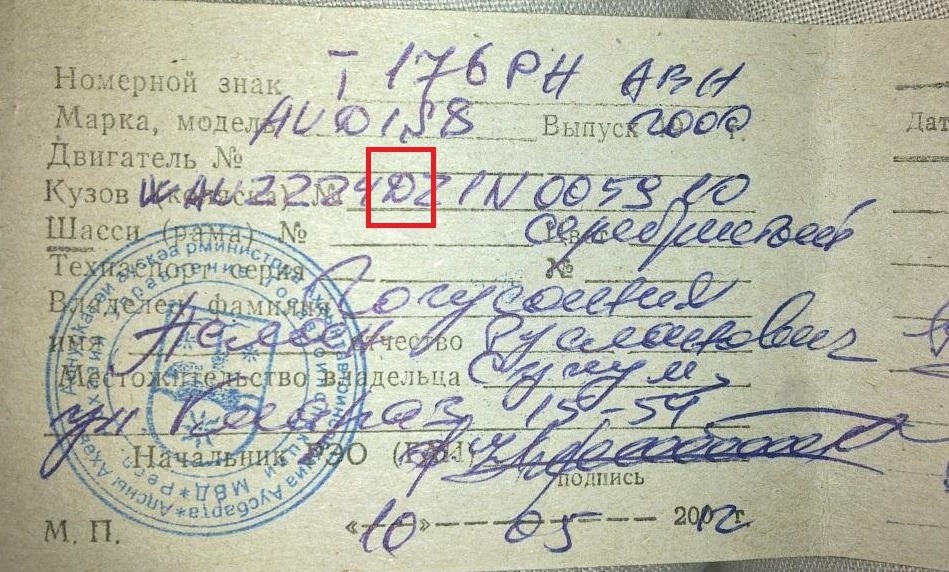 Номерной знак Т 176 РН АВН
Марка, модель AUDI S8 Выпуск 2000 г. Дат
Двигатель №
Кузов (коляска) № WAUZZZ4DZ1N005910
Шасси (рама) № Цвет серебристый
Техпаспорт серия №
Владелец фамилия
имя отчество Русланович
Местожительство владельца Сухум,
ул 15-54
Начальник РЭО (ГАИ)
подпись
М. П. «10» 05 2012 г.